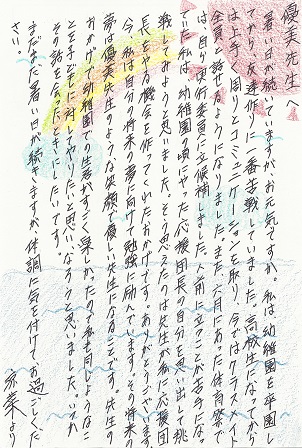 優美先生へ
暑い日が続いていますが、お元気ですか。私は幼稚園を卒園し
てから、友達作りに一番苦戦していました。高校生になってから
は上手く周りとコミュニケーションを取り、今ではクラスメイト
全員と話せるようになりました。また、六月にあった体育祭で
は、自ら実行委員に立候補しました。人前に立つことが苦手にな
っていた私は、幼稚園の頃にやった応援団長の自分を思い出して挑
戦してみようと思いました。そう思えたのは先生が私に応援団
長をやる機会を作ってくれたおかげです。ありがとうございます。
今、私は自分の将来の夢に向けて勉強に励んでいます。その将来の
夢は、優美先生のような笑顔で優しい先生になることです。先生の
おかげで幼稚園での生活がすごく楽しかったので私も同じようなこ
とを子どもに対してやりたいと思い、なろうと思いました。いつか
その話を会ってしたいです。
まだまだ暑い日が続きますが、体調に気を付けてお過ごしくだ
さい。
より